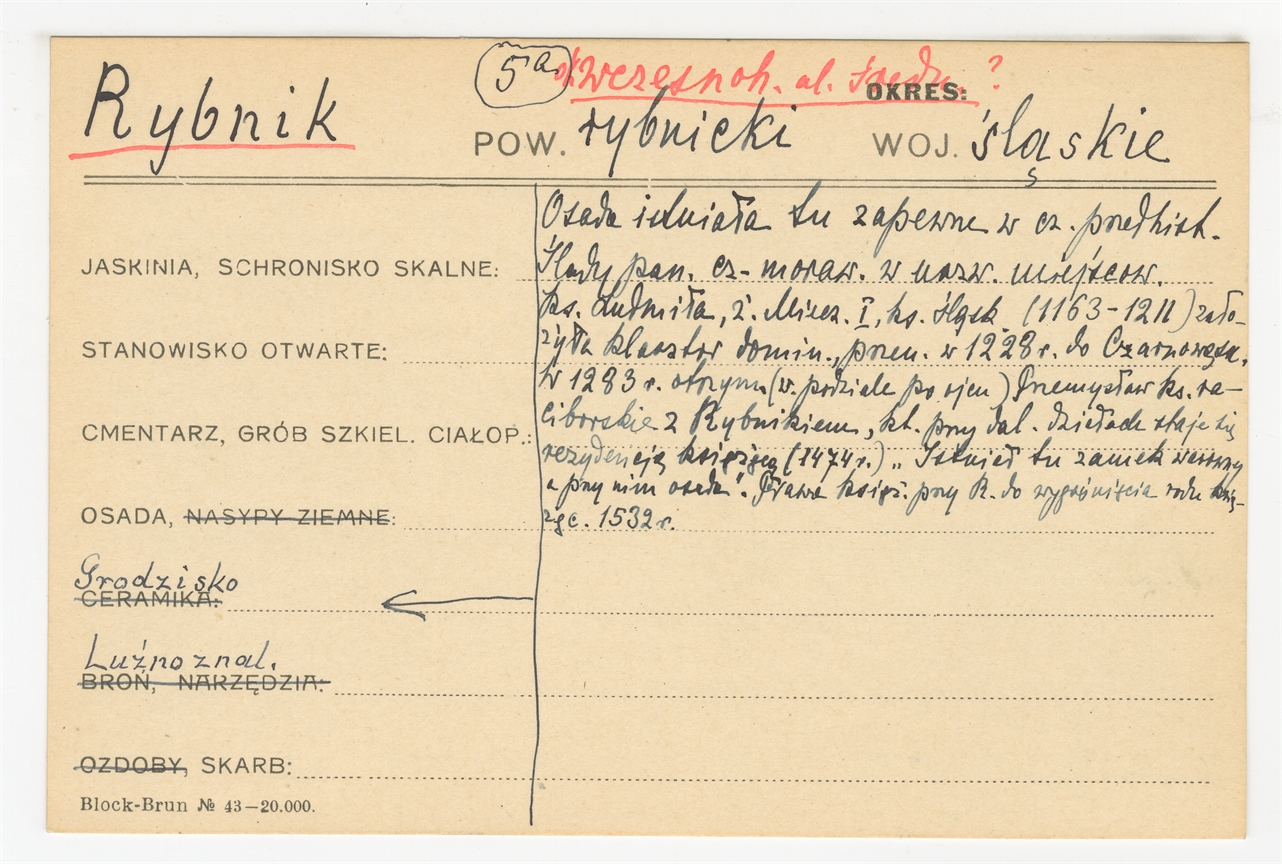 5a
wczesnoh. al. średn. ?
OKRES:
Rybnik
POW. rybnicki WOJ. śląskie
Osada istniała tu zapewne w cz. przedhist.
Ślady pan. cz-moraw. w nazw. miejscow.
Ks. Ludmiła, ż. Miecz. I, ks. śląsk. (1163-1211) zało-
żyła klasztor domin., przen. w 1228 r. do Czarnowąsa.
W 1283 r. otrzym. (w podziale po ojcu) Przemysław ks. ra-
ciborskie z Rybnikiem, kt. przy dal. działach staje się
rezydencją książęcą (1474 r.) „Istniał tu zamek warowny
a przy nim osada". Prawa książ. przy R. do wygaśnięcia rodu ksią-
żęc. 1532 r.
JASKINIA, SCHRONISKO SKALNE:
STANOWISKO OTWARTE:
CMENTARZ, GRÓB SZKIEL. CIAŁOP.:
OSADA, NASYPY ZIEMNE:
Grodzisko
CERAMIKA:
Luźno znal.
BROŃ, NARZĘDZIA:
OZDOBY, SKARB:
Block-Brun № 43—20.000.